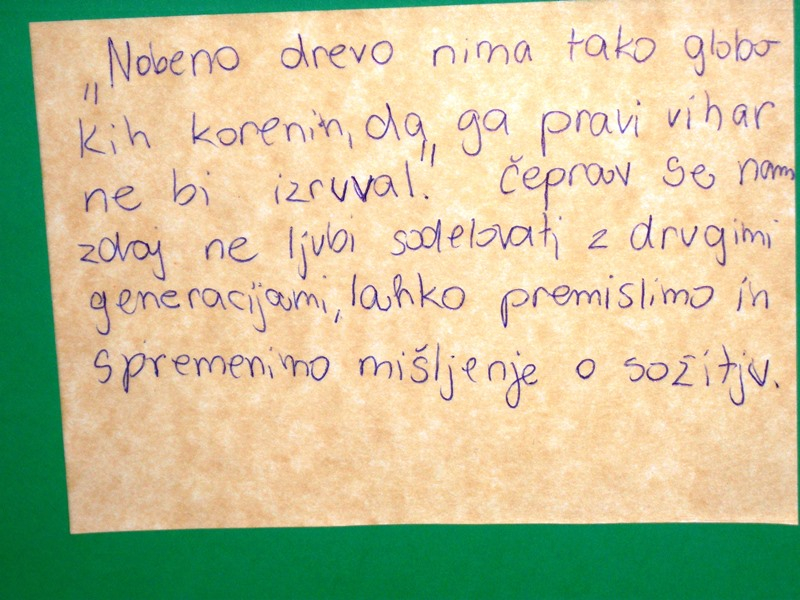 „Nobeno drevo nima tako globo
kih korenin, da ga pravi vihar
ne bi izruval." čeprav se nam
zdaj ne ljubi sodelovati z drugimi
generacijami, lahko premislimo in
spremenimo mišljenje o sožitju.